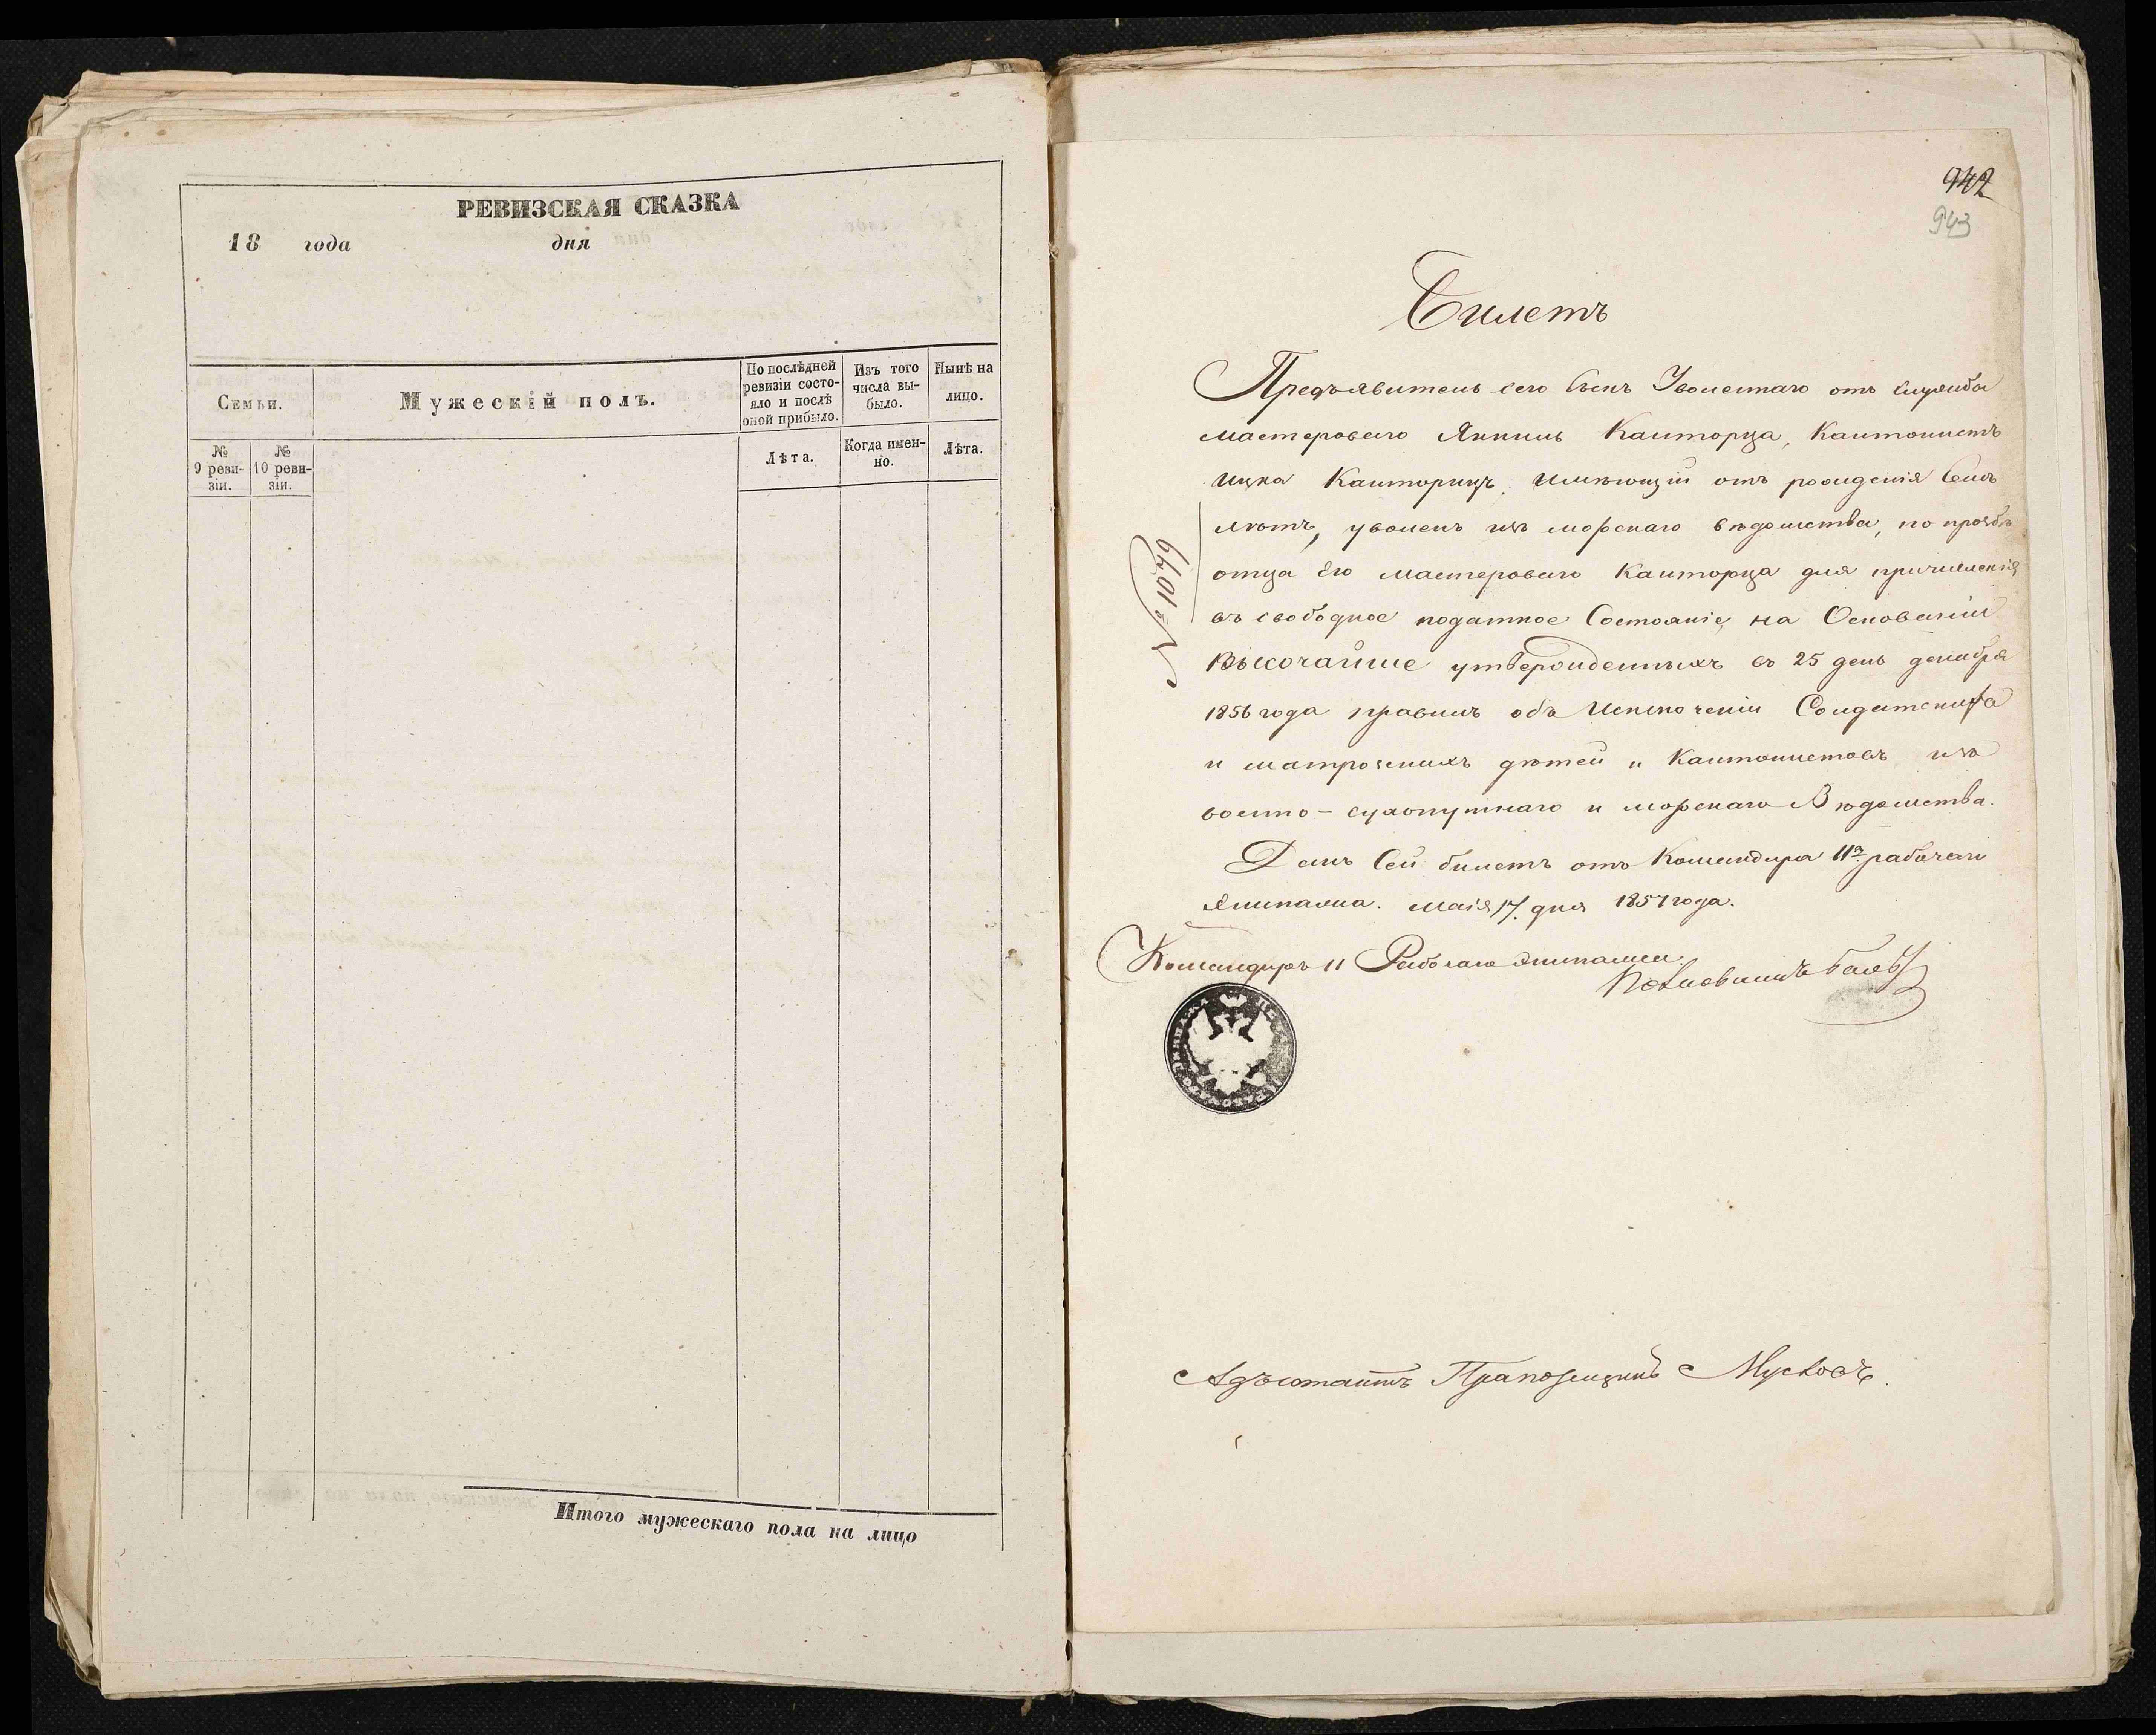 РЕВИЗСКАЯ СКАЗКА
18 года дня
Семьи.
Мужескій полъ.
По послѣдней ревизіи состояло и послѣ оной прибыло.
Изъ того числа выбыло.
Нынѣ на лицо.
№ 9 ревизіи.
№ 10 ревизіи.
Лѣта.
Когда именно.
Лѣта.
Итого мужескаго пола на лицо
942
943
Билетъ
Предъявитель сего Сынъ Уволеннаго отъ службы
мастероваго Янкиль Канторца, Кантонистъ
Ицка Канторицъ, имѣющій отъ рожденія Семь
лѣтъ, уволенъ изъ морскаго вѣдомства, по прозбѣ
отца Его мастероваго Канторца для причисленія
въ свободное податное Состояніе, на Основаніи
Высочайше утвержденныхъ въ 25 день декабря
1856 года правилъ объ Исключеніи Солдатскихъ
и матроскихъ дѣтей и Кантонистовъ изъ
военно-сухопутнаго и морскаго Вѣдомства.
Данъ Сей билетъ отъ Командира 11го рабочаго
Экипажа. Маія 17 дня 1857 года.
№ 1049
Командиръ 11 Рабочаго Экипажа
Адъютантъ Прапорщикъ